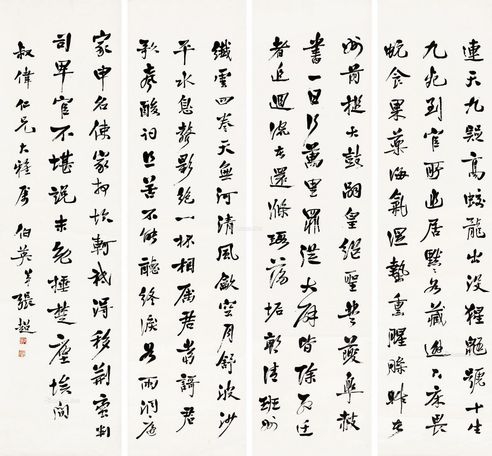 連天九疑高蛟龍出沒猩鼯號十生
九死到官所幽居默默藏逃下床畏
蛇食畏藥海氣濕蟄熏腥臊昨者
州前搥大鼓嗣皇繼聖登夔皋赦
書一日行萬里罪從大辟皆除死遷
者追迴流者還滌瑕蕩垢朝清班州
纖雲四卷天無河清風吹空月舒波沙
平水息聲影絕一杯相屬君當歌君
歌聲酸詞且苦不能聽終淚如雨洞庭
家申名使家抑坎軻祇得移荊蠻判
司卑官不堪說未免捶楚塵埃間
叔偉仁兄大雅屬 伯英弟張